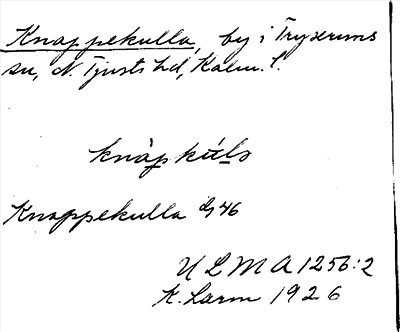 Knappekulla, by i Tryserums
sn, N. Tjusts hd, Kalm. l.
Knappekulla dg 46
ULMA 1256:2
K. Larm 1926